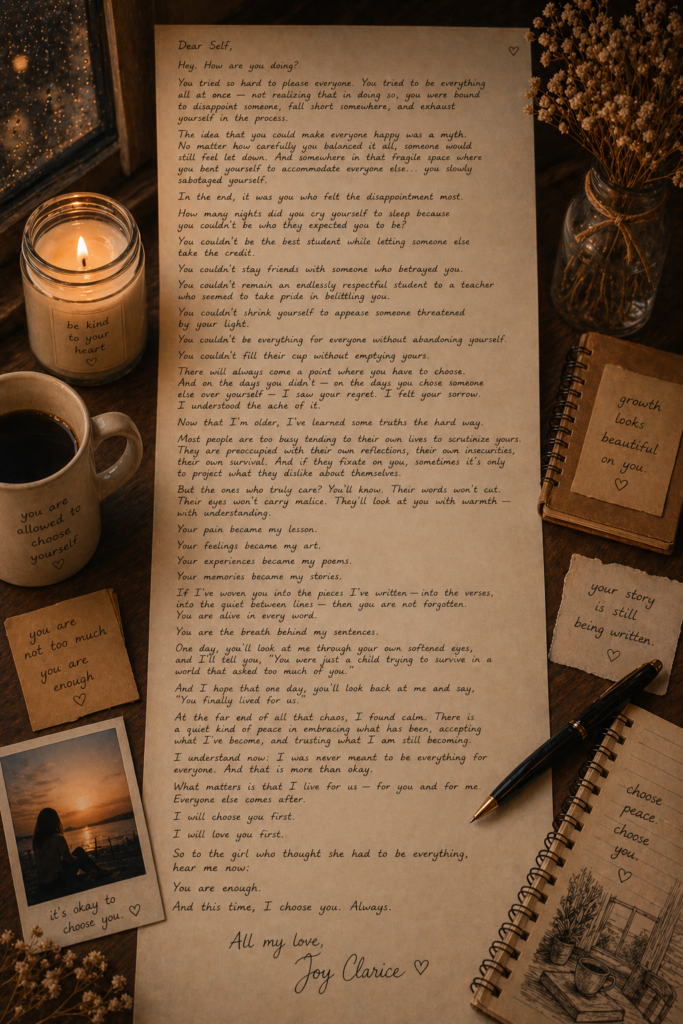 Dear Self,
Hey. How are you doing?
You tried so hard to please everyone. You tried to be everything
all at once — not realizing that in doing so, you were bound
to disappoint someone, fall short somewhere, and exhaust
yourself in the process.
The idea that you could make everyone happy was a myth.
No matter how carefully you balanced it all, someone would
still feel let down. And somewhere in that fragile space where
you bent yourself to accommodate everyone else... you slowly
sabotaged yourself.
In the end, it was you who felt the disappointment most.
How many nights did you cry yourself to sleep because
you couldn't be who they expected you to be?
You couldn't be the best student while letting someone else
take the credit.
You couldn't stay friends with someone who betrayed you.
You couldn't remain an endlessly respectful student to a teacher
who seemed to take pride in belittling you.
You couldn't shrink yourself to appease someone threatened
by your light.
You couldn't be everything for everyone without abandoning yourself.
You couldn't fill their cup without emptying yours.
There will always come a point where you have to choose.
And on the days you didn't — on the days you chose someone
else over yourself — I saw your regret. I felt your sorrow.
I understood the ache of it.
Now that I'm older, I've learned some truths the hard way.
Most people are too busy tending to their own lives to scrutinize yours.
They are preoccupied with their own reflections, their own insecurities,
their own survival. And if they fixate on you, sometimes it's only
to project what they dislike about themselves.
But the ones who truly care? You'll know. Their words won't cut.
Their eyes won't carry malice. They'll look at you with warmth —
with understanding.
Your pain became my lesson.
Your feelings became my art.
Your experiences became my poems.
Your memories became my stories.
If I've woven you into the pieces I've written — into the verses,
into the quiet between lines — then you are not forgotten.
You are alive in every word.
You are the breath behind my sentences.
One day, you'll look at me through your own softened eyes,
and I'll tell you, "You were just a child trying to survive in a
world that asked too much of you."
And I hope that one day, you'll look back at me and say,
"You finally lived for us."
At the far end of all that chaos, I found calm. There is
a quiet kind of peace in embracing what has been, accepting
what I've become, and trusting what I am still becoming.
I understand now: I was never meant to be everything for
everyone. And that is more than okay.
What matters is that I live for us — for you and for me.
Everyone else comes after.
I will choose you first.
I will love you first.
So to the girl who thought she had to be everything,
hear me now:
You are enough.
And this time, I choose you. Always.
All my love,
Joy Clarice ♡
be kind
to your
heart
♡
you are
allowed to
choose
yourself
♡
you are
not too much
you are
enough
♡
it's okay to
choose you. ♡
growth
looks
beautiful
on you.
♡
your story
is still
being written.
♡
choose
peace.
choose
you.
♡